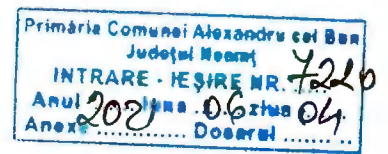 Primăria Comunei Alexandru cel Bun
Județul Neamț
INTRARE - IEȘIRE NR. 7220
Anul 202 luna 06 ziua 04
Anexe ............ Dosarul ..........